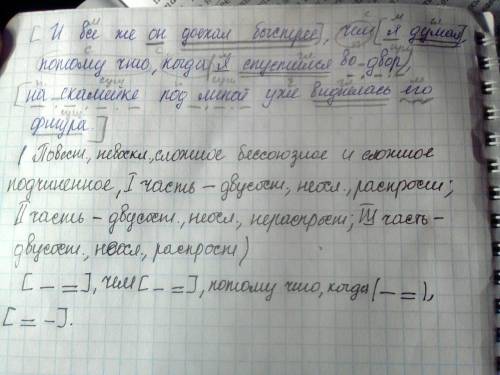 [И все же он доехал быстрее], чем [я думал],
потому что, когда (я спустился во двор),
[на скамейке под липой уже виднелась его
фигура.]
(Повест., невоскл., сложное бессоюзное и сложное
подчиненное, I часть – двусост., неосл., распростн;
II часть – двусост., неосл., нераспрост; III часть –
двусост., неосл., распрост)
[ – = ], чем [ – = ], потому что, когда ( – = ),
[ = – ].